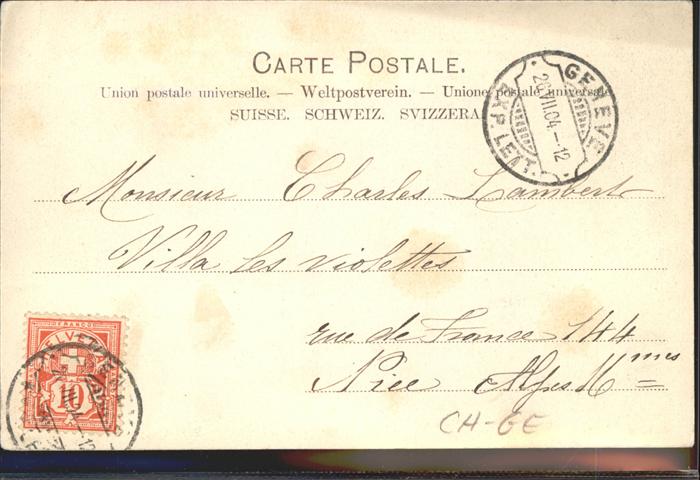 CARTE POSTALE.
Union postale universelle. — Weltpostverein. — Unione postale universale
SUISSE. SCHWEIZ. SVIZZERA.
GENEVE
EXP. LETT.
26.VII.04.–12
Monsieur Charles Lambert
Villa les violettes
rue de France 144
Nice Alpes Mmes
FRANCO
10
CH-GE